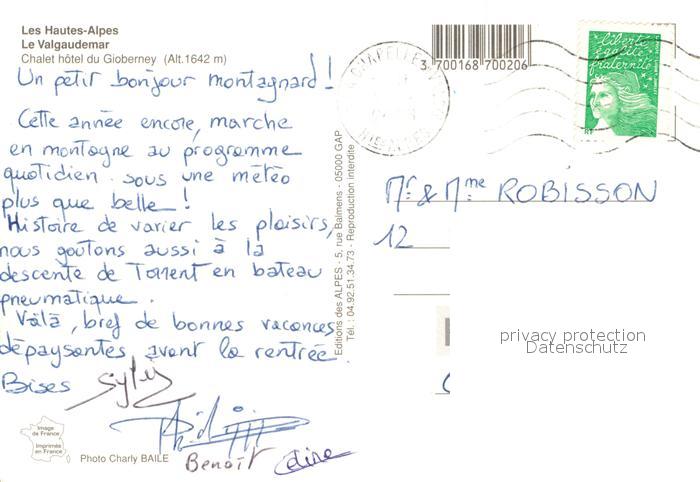 Les Hautes-Alpes
Le Valgaudemar
Chalet hôtel du Gioberney (Alt.1642 m)
Un petit bonjour montagnard !
Cette année encore, marche
en montagne au programme
quotidien sous une météo
plus que belle !
Histoire de varier les plaisirs,
nous goutons aussi à la
descente de Torrent en bateau
pneumatique.
Voilà, bref de bonnes vacances
dépaysantes avant la rentrée.
Bises
Philippe
Benoît Claire
Image
de France
Imprimée
en France
Photo Charly BAILE
Editions des ALPES - 5, rue Balmens - 05000 GAP
Tél. : 04.92.51.34.73 - Reproduction interdite
3 700168 700206
CHAPELLE
HTES ALPES
liberté
égalité
fraternité
RF
Mr & Mme ROBISSON
12
privacy protection
Datenschutz